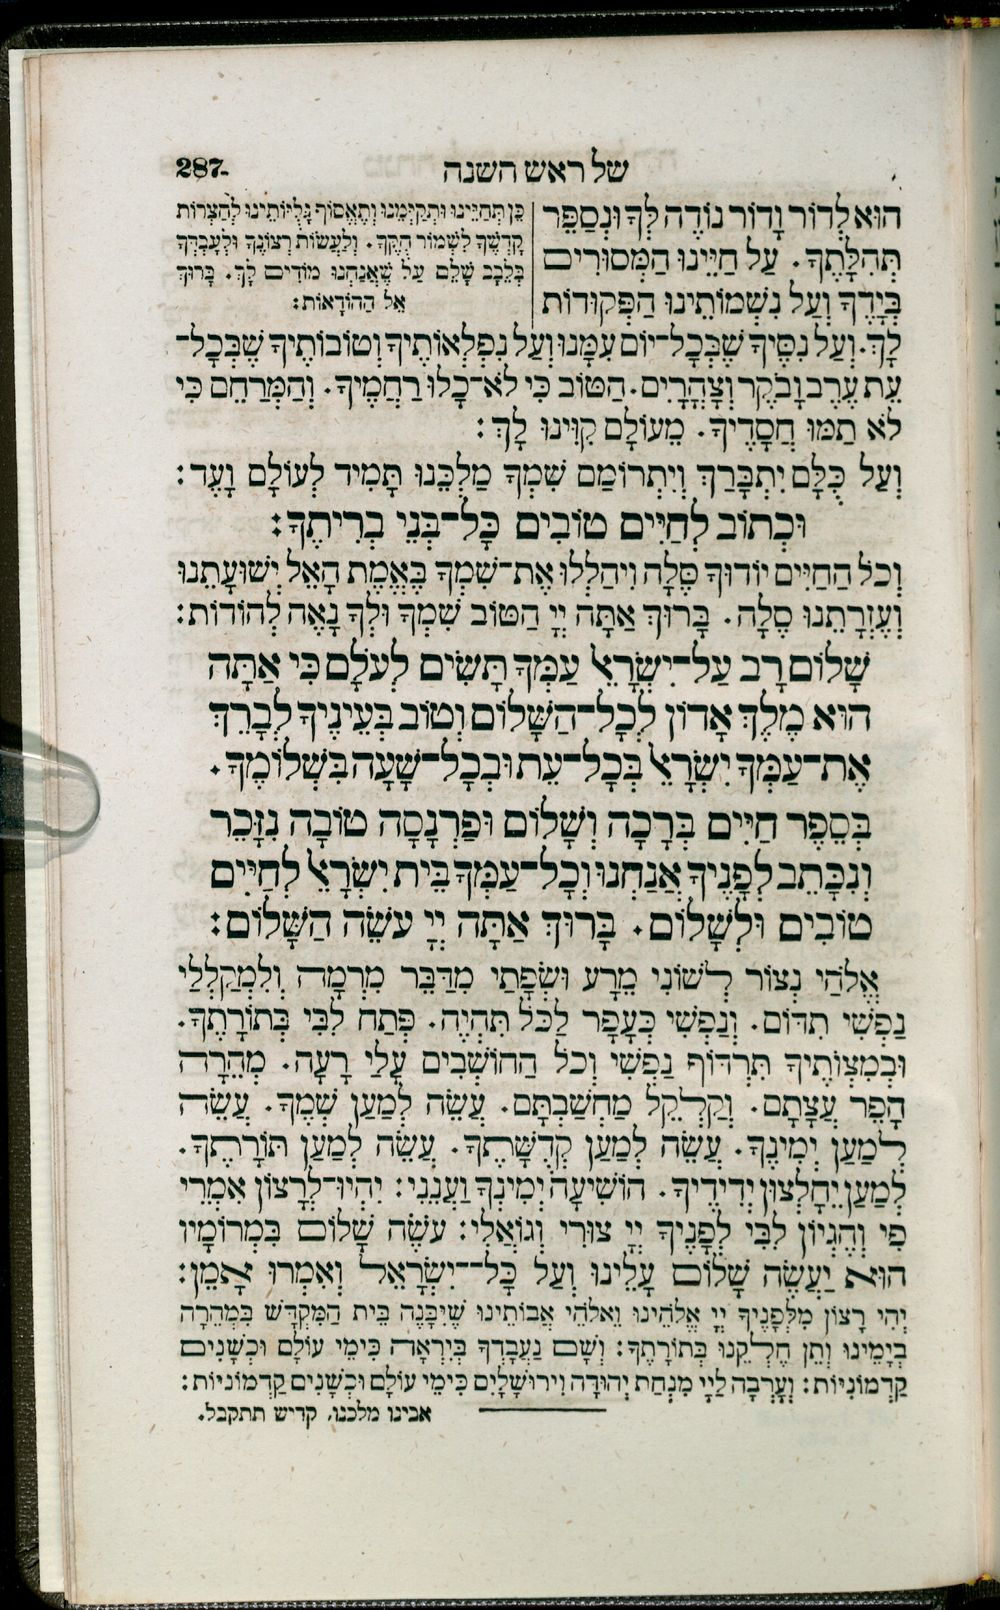 של ראש השנה
287.
הוּא לְדוֹר וָדוֹר נוֹדֶה לְּךָ וּנְסַפֵּר
תְּהִלָּתֶךָ. עַל חַיֵּינוּ הַמְּסוּרִים
בְּיָדֶךָ וְעַל נִשְׁמוֹתֵינוּ הַפְּקוּדוֹת
כֵּן תְּחַיֵּינוּ וּתְקַיְּמֵנוּ וְתֶאֱסוֹף גָּלֻיּוֹתֵינוּ לְחַצְרוֹת
קָדְשֶׁךָ לִשְׁמוֹר חֻקֶּיךָ. וְלַעֲשׂוֹת רְצוֹנֶךָ וּלְעָבְדְּךָ
בְּלֵבָב שָׁלֵם עַל שֶׁאֲנַחְנוּ מוֹדִים לָךְ. בָּרוּךְ
אֵל הַהוֹדָאוֹת:
לָךְ. וְעַל נִסֶּיךָ שֶׁבְּכָל־יוֹם עִמָּנוּ וְעַל נִפְלְאוֹתֶיךָ וְטוֹבוֹתֶיךָ שֶׁבְּכָל־
עֵת עֶרֶב וָבֹקֶר וְצָהֳרָיִם. הַטּוֹב כִּי לֹא־כָלוּ רַחֲמֶיךָ. וְהַמְרַחֵם כִּי
לֹא תַמּוּ חֲסָדֶיךָ. מֵעוֹלָם קִוִּינוּ לָךְ:
וְעַל כֻּלָּם יִתְבָּרַךְ וְיִתְרוֹמַם שִׁמְךָ מַלְכֵּנוּ תָּמִיד לְעוֹלָם וָעֶד:
וּכְתוֹב לְחַיִּים טוֹבִים כָּל־בְּנֵי בְרִיתֶךָ:
וְכֹל הַחַיִּים יוֹדוּךָ סֶּלָה וִיהַלְלוּ אֶת־שִׁמְךָ בֶּאֱמֶת הָאֵל יְשׁוּעָתֵנוּ
וְעֶזְרָתֵנוּ סֶלָה. בָּרוּךְ אַתָּה יְיָ הַטּוֹב שִׁמְךָ וּלְךָ נָאֶה לְהוֹדוֹת:
שָׁלוֹם רָב עַל־יִשְׂרָאֵל עַמְּךָ תָּשִׂים לְעוֹלָם כִּי אַתָּה
הוּא מֶלֶךְ אָדוֹן לְכָל־הַשָּׁלוֹם וְטוֹב בְּעֵינֶיךָ לְבָרֵךְ
אֶת־עַמְּךָ יִשְׂרָאֵל בְּכָל־עֵת וּבְכָל־שָׁעָה בִּשְׁלוֹמֶךָ.
בְּסֵפֶר חַיִּים בְּרָכָה וְשָׁלוֹם וּפַרְנָסָה טוֹבָה נִזָּכֵר
וְנִכָּתֵב לְפָנֶיךָ אֲנַחְנוּ וְכָל־עַמְּךָ בֵּית יִשְׂרָאֵל לְחַיִּים
טוֹבִים וּלְשָׁלוֹם. בָּרוּךְ אַתָּה יְיָ עֹשֵׂה הַשָּׁלוֹם:
אֱלֹהַי נְצוֹר לְשׁוֹנִי מֵרָע וּשְׂפָתַי מִדַּבֵּר מִרְמָה וְלִמְקַלְלַי
נַפְשִׁי תִדּוֹם. וְנַפְשִׁי כְּעָפָר לַכֹּל תִּהְיֶה. פְּתַח לִבִּי בְּתוֹרָתֶךָ.
וּבְמִצְוֹתֶיךָ תִּרְדּוֹף נַפְשִׁי וְכֹל הַחוֹשְׁבִים עָלַי רָעָה. מְהֵרָה
הָפֵר עֲצָתָם. וְקַלְקֵל מַחֲשַׁבְתָּם. עֲשֵׂה לְמַעַן שְׁמֶךָ. עֲשֵׂה
לְמַעַן יְמִינֶךָ. עֲשֵׂה לְמַעַן קְדֻשָּׁתֶךָ. עֲשֵׂה לְמַעַן תּוֹרָתֶךָ.
לְמַעַן יֵחָלְצוּן יְדִידֶיךָ. הוֹשִׁיעָה יְמִינְךָ וַעֲנֵנִי: יִהְיוּ־לְרָצוֹן אִמְרֵי
פִי וְהֶגְיוֹן לִבִּי לְפָנֶיךָ יְיָ צוּרִי וְגוֹאֲלִי: עֹשֶׂה שָׁלוֹם בִּמְרוֹמָיו
הוּא יַעֲשֶׂה שָׁלוֹם עָלֵינוּ וְעַל כָּל־יִשְׂרָאֵל וְאִמְרוּ אָמֵן:
יְהִי רָצוֹן מִלְּפָנֶיךָ יְיָ אֱלֹהֵינוּ וֵאלֹהֵי אֲבוֹתֵינוּ שֶׁיִּבָּנֶה בֵּית הַמִּקְדָּשׁ בִּמְהֵרָה
בְיָמֵינוּ וְתֵן חֶלְקֵנוּ בְּתוֹרָתֶךָ: וְשָׁם נַעֲבָדְךָ בְּיִרְאָה כִּימֵי עוֹלָם וּכְשָׁנִים
קַדְמוֹנִיּוֹת: וְעָרְבָה לַיְיָ מִנְחַת יְהוּדָה וִירוּשָׁלָיִם כִּימֵי עוֹלָם וּכְשָׁנִים קַדְמוֹנִיּוֹת:
אבינו מלכנו, קדיש תתקבל.